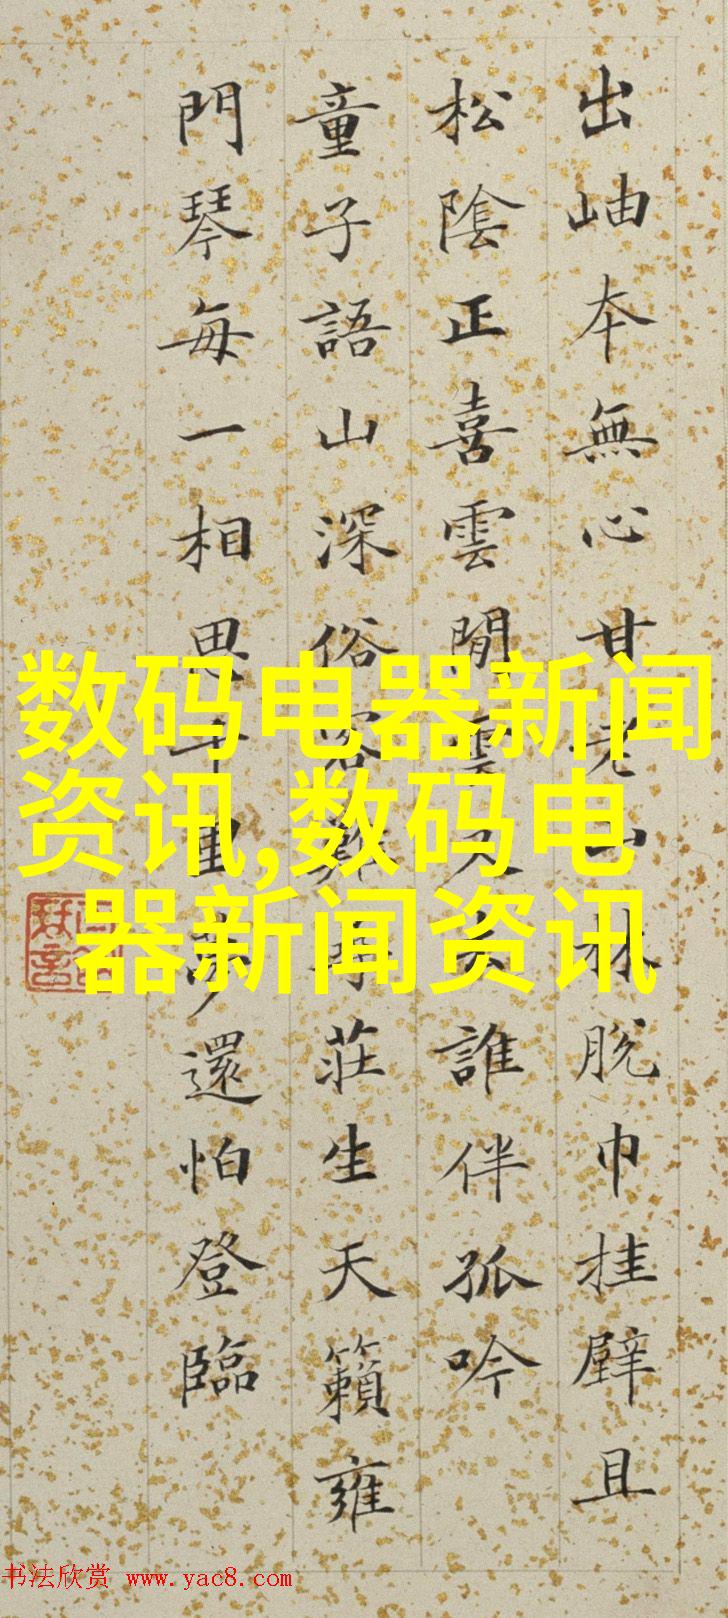 出岫本無心甘老山林脫巾挂壁且
松陰正喜雲閒雲又去誰伴孤吟
童子語山深俗客難尋莊生天籟雍
門琴每一相思千里夢還怕登臨
数码电器新闻
资讯,数码电
器新闻资讯
书法欣赏 www.yac8.com